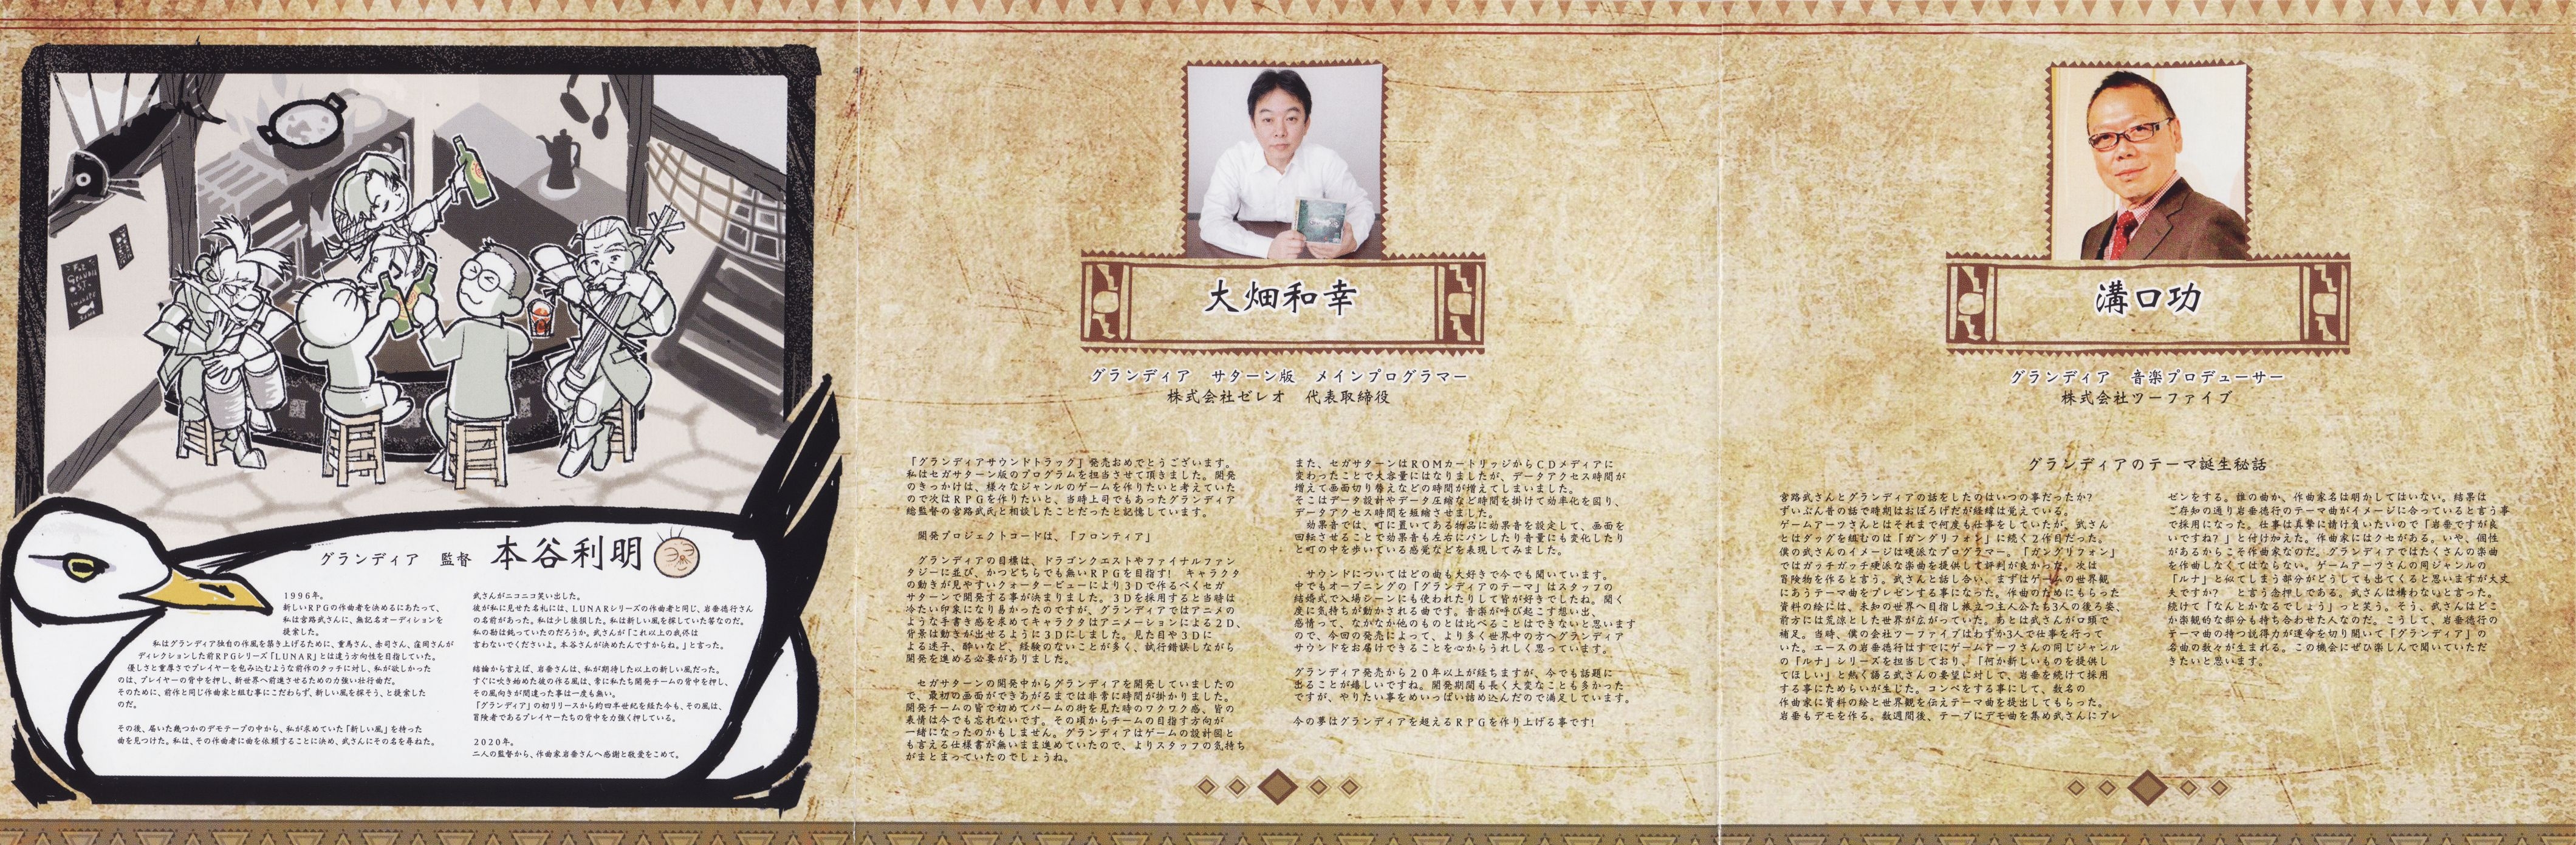 FOR
GRANDIA
グランディア 監督 本谷利明
1996年。
新しいRPGの作曲者を決めるにあたって、
私は宮路武さんに、無記名オーディションを
提案した。
私はグランディア独自の作風を築き上げるために、重馬さん、赤司さん、窪岡さんが
ディレクションした前RPGシリーズ「LUNAR」とは違う方向性を目指していた。
優しさと重厚さでプレイヤーを包み込むような前作のタッチに対し、私が欲しかった
のは、プレイヤーの背中を押し、新世界へ前進させるための力強い壮行曲だ。
そのために、前作と同じ作曲家と組む事にこだわらず、新しい風を探そう、と提案した
のだ。
その後、届いた幾つかのデモテープの中から、私が求めていた「新しい風」を持った
曲を見つけた。私は、その作曲者に曲を依頼することに決め、武さんにその名を尋ねた。
武さんがニコニコ笑い出した。
彼が私に見せた名札には、LUNARシリーズの作曲者と同じ、岩垂徳行さん
の名前があった。私は少し狼狽した。私は新しい風を探していた筈なのだ。
私の勘は鈍っていたのだろうか。武さんが「これ以上の武侠は
言わないでくださいよ。本谷さんが決めたんですからね。」と言った。
結論から言えば、岩垂さんは、私が期待した以上の新しい風だった。
すぐに吹き始めた彼の作る風は、常に私たち開発チームの背中を押し、
その風向きが間違った事は一度も無い。
「グランディア」の初リリースから約四半世紀を経た今も、その風は、
冒険者であるプレイヤーたちの背中を力強く押している。
2020年。
二人の監督から、作曲家岩垂さんへ感謝と敬愛をこめて。
大畑和幸
グランディア サターン版 メインプログラマー
株式会社ゼレオ 代表取締役
「グランディアサウンドトラック」発売おめでとうございます。
私はセガサターン版のプログラムを担当させて頂きました。開発
のきっかけは、様々なジャンルのゲームを作りたいと考えていた
ので次はRPGを作りたいと、当時上司でもあったグランディア
総監督の宮路武氏と相談したことだったと記憶しています。
開発プロジェクトコードは、「フロンティア」
グランディアの目標は、ドラゴンクエストやファイナルファン
タジーに並び、かつどちらでも無いRPGを目指す! キャラクタ
の動きが見やすいクォータービューにより3Dで作るべくセガ
サターンで開発する事が決まりました。3Dを採用すると当時は
冷たい印象になり易かったのですが、グランディアではアニメの
ような手書き感を求めてキャラクタはアニメーションによる2D、
背景は動きが出せるように3Dにしました。見た目や3Dに
よる迷子、酔いなど、経験のないことが多く、試行錯誤しながら
開発を進める必要がありました。
セガサターンの開発中からグランディアを開発していましたの
で、最初の画面ができあがるまでは非常に時間が掛かりました。
開発チームの皆で初めてパームの街を見た時のワクワク感、皆の
表情は今でも忘れないです。その頃からチームの目指す方向が
一緒になったのかもしません。グランディアはゲームの設計図と
も言える仕様書が無いまま進めていたので、よりスタッフの気持ち
がまとまっていたのでしょうね。
また、セガサターンはROMカートリッジからCDメディアに
変わったことで大容量にはなりましたが、データアクセス時間が
増えて画面切り替えなどの時間が増えてしまいました。
そこはデータ設計やデータ圧縮など時間を掛けて効率化を図り、
データアクセス時間を短縮させました。
効果音では、町に置いてある物品に効果音を設定して、画面を
回転させることで効果音も左右にパンしたり音量にも変化したり
と町の中を歩いている感覚などを表現してみました。
サウンドについてはどの曲も大好きで今でも聞いています。
中でもオープニングの「グランディアのテーマ」はスタッフの
結婚式で入場シーンにも使われたりして皆が好きでしたね。聞く
度に気持ちが動かされる曲です。音楽が呼び起こす想い出、
感情って、なかなか他のものとは比べることはできないと思います
ので、今回の発売によって、より多く世界中の方へグランディア
サウンドをお届けできることを心からうれしく思っています。
グランディア発売から20年以上が経ちますが、今でも話題に
出ることが嬉しいですね。開発期間も長く大変なことも多かった
ですが、やりたい事をめいっぱい詰め込んだので満足しています。
今の夢はグランディアを超えるRPGを作り上げる事です!
溝口功
グランディア 音楽プロデューサー
株式会社ツーファイブ
グランディアのテーマ誕生秘話
宮路武さんとグランディアの話をしたのはいつの事だったか?
ずいぶん昔の話で時期はおぼろげだが経緯は覚えている。
ゲームアーツさんとはそれまで何度も仕事をしていたが、武さん
とはタッグを組むのは「ガングリフォン」に続く2作目だった。
僕の武さんのイメージは硬派なプログラマー。「ガングリフォン」
ではガッチガッチ硬派な楽曲を提供して評判が良かった。次は
冒険物を作ると言う。武さんと話し合い、まずはゲームの世界観
にあうテーマ曲をプレゼンする事になった。作曲のためにもらった
資料の絵には、未知の世界へ目指し旅立つ主人公たち3人の後ろ姿、
前方には荒涼とした世界が広がっていた。あとは武さんが口頭で
補足。当時、僕の会社ツーファイブはわずか3人で仕事を行って
いた。エースの岩垂徳行はすでにゲームアーツさんの同じジャンル
の「ルナ」シリーズを担当しており、「何か新しいものを提供し
てほしい」と熱く語る武さんの要望に対して、岩垂を続けて採用
する事にためらいが生じた。コンペをする事にして、数名の
作曲家に資料の絵と世界観を伝えテーマ曲を提出してもらった。
岩垂もデモを作る。数週間後、テープにデモ曲を集め武さんにプレ
ゼンをする。誰の曲か、作曲家名は明かしてはいない。結果は
ご存知の通り岩垂徳行のテーマ曲がイメージに合っていると言う事
で採用になった。仕事は真摯に請け負いたいので「岩垂ですが良
いですね?」と付け加えた。作曲家にはクセがある。いや、個性
があるからこそ作曲家なのだ。グランディアではたくさんの楽曲
を作曲しなくてはならない。ゲームアーツさんの同ジャンルの
「ルナ」と似てしまう部分がどうしても出てくると思いますが大丈
夫ですか? と言う念押しである。武さんは構わないと言った。
続けて「なんとかなるでしょう」っと笑う。そう、武さんはどこ
か楽観的な部分も持ち合わせた人なのだ。こうして、岩垂徳行の
テーマ曲の持つ説得力が運命を切り開いて「グランディア」の
名曲の数々が生まれる。この機会にぜひ楽しんで聞いていただ
きたいと思います。